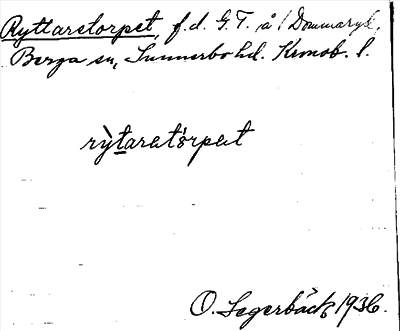 Ryttaretorpet, f.d. G.T. å 1 Dommaryd,
Berga sn, Sunnerbo hd. Kronob. l.
rỳtaretòrpet
O. Segerbäck 1936.